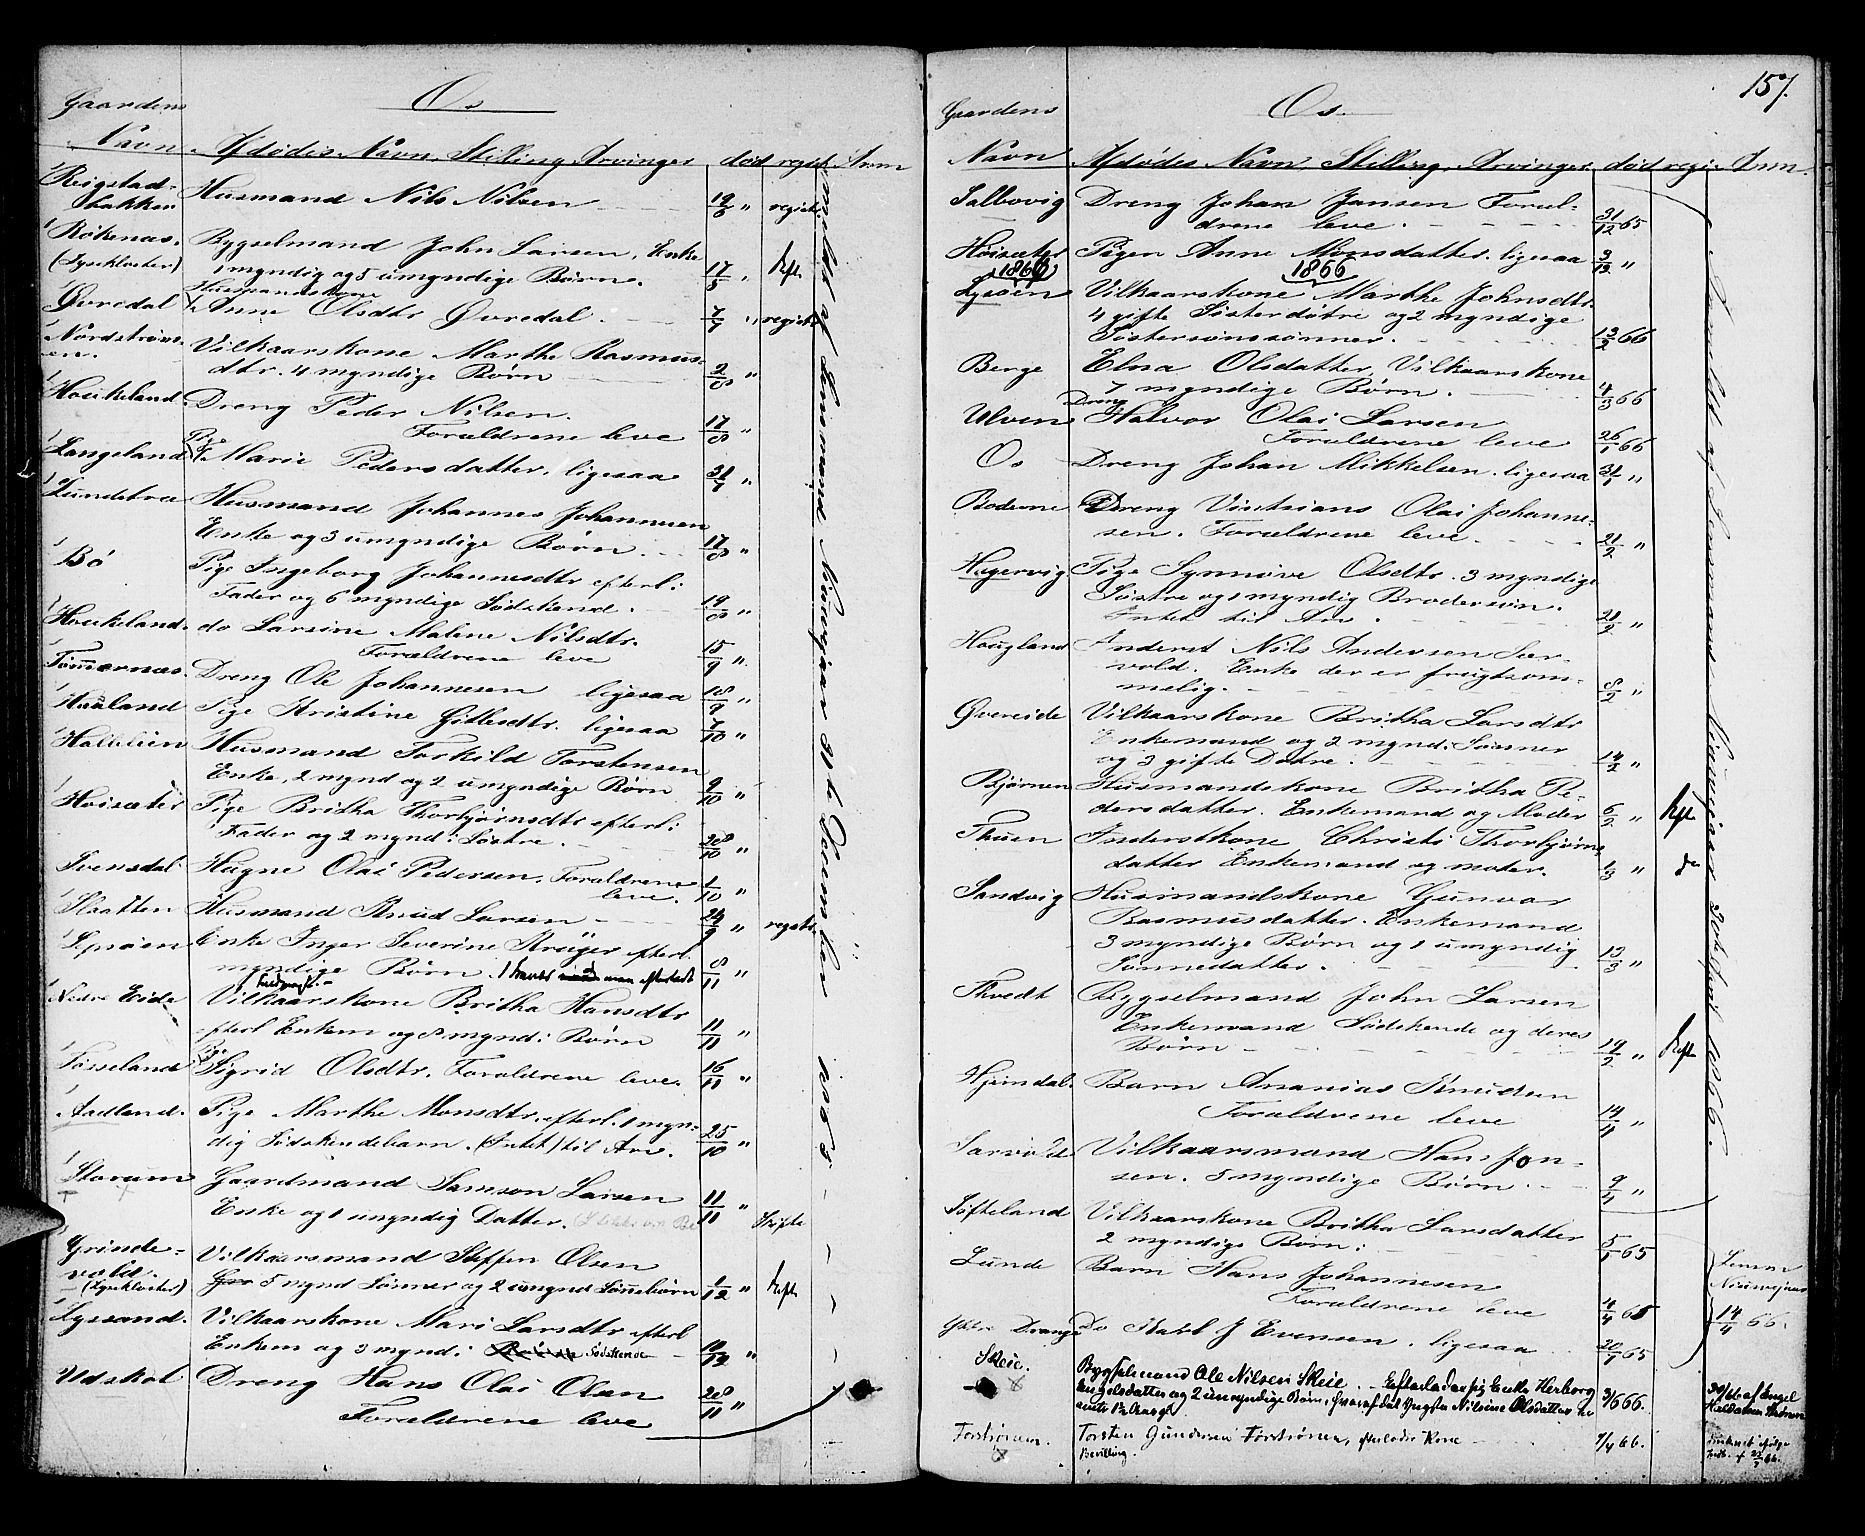 Gaardens Os
Navn Afdødes Navn, Stilling, Arvinger død regist. Anm
Reigstad-
bakken Husmand Nils Nilsen 19/6 " registr.
Røkenæs. Bygselmand John Larsen, Enke
(Lysekloster) 1 myndig og 5 umyndige Børn. 17/5 " skft.
Husmandskone
Øvredal Anne Olsdtr Øvredal. 7/7 " registr.
Nordstrøm-
en. Vilkaarskone Marthe Rasmus-
dtr. 4 myndige Børn 2/8 "
Houkeland. Dreng Peder Nilsen.
Forældrene leve 17/8 "
Langeland Pige Marie Pedersdatter. ligesaa 31/7 "
Lundetræ Husmand Johannes Johannesen
Enke og 3 umyndige Børn. 17/8 "
Bø Pige Ingeborg Johannesdtr efterl:
Fader og 6 myndige Sødskend. 19/8 "
Houkeland. do Larsine Malene Nilsdtr.
Forældrene leve 15/9 "
Tømmernæs. Dreng Ole Johannesen ligesaa 18/9 "
Haaland Pige Kristine Gitlesdtr. ligesaa 7/10 "
Halhleien Husmand Torkild Torstensen
Enke, 2 mynd og 2 umyndige Børn 9/10 "
Hoisæter Pige Britha Thorbjørnsdtr efterl:
Fader og 2 mynd: Søstre. 28/10 "
Svensdal Hagne Olai Pedersen, Forældrene
leve. 1/10 "
Slaatten Husmand Knud Larsen 24/9 " registr.
Lysøen Enke Inger Severine Krüger efterl.
myndige Børn. 8/11 "
Nedre Eide Vilkaarskone Britha Hansdtr
efterl Enkem og 8 mynd: Børn 11/11 "
Tøsseland Pige Sigrid Olsdtr. Forældrene leve. 16/11 "
Aadland. Pige Marthe Monsdtr. efterl. 1 myn-
dig Sødskendebarn. (Intet) til Arv. 25/10 "
Storum Gaardmand Samson Larsen
Enke og 1 umyndig Datter. 11/11 " Skifte
Grinde-
vold. Vilkaarsmand Steffen Olsen
(Lysekloster) 5 mynd Sønner og 2 umynd Sønnebørn 1/12 " skft.
Lyssand. Vilkaarskone Mari Larsdtr efterl
Enkem og 3 mynd: Sødskende 10/12 "
Udskot Dreng Hans Olai Olsen
Forældrene leve 28/11 "
anmeldt af Lensmand Norevjaar 31te December 1865

157.
Gaardens Os
Navn Afdødes Navn, Stilling, Arvinger. død regi. Anm.
Salbovig Dreng Johan Jansen Foræl-
drene leve. 31/12 65
Høisæter Pigen Anne Monsdatter. ligesaa 3/12 "
1866 1866
Lysøen Vilkaarskone Marthe Johnsdtr
4 gifte Søsterdøtre og 2 myndige
Søstersønssønner. 12/2 66
Berge Elna Olsdatter, Vilkaarskone
7 myndige Børn. 4/3 66
Ulven Dreng Halvor Olai Larsen
Forældrene leve 26/1 66
Os Dreng Johan Mikkelsen. ligesaa 31/1 "
Boderne Dreng Vintsians Olai Johanne-
sen. Forældrene leve. 21/2 "
Hagervig. Pige Synnøve Olsdtr. 3 myndige
Søstre og 1 myndig Brodersøn.
Intet til Arv. 21/2 "
Hougland Inderst Nils Andersen Sør-
vold. Enke der er frugtsom-
melig. 8/2 "
Øvereide Vilkaarskone Britha Larsdtr
Enkemand og 2 mynd: Sønner
og 3 gifte Døtre. 14/2 "
Bjørnen Husmandskone Britha Pe-
dersdatter. Enkemand og Moder 6/2 " skft.
Thuen Inderstkone Christi Thorbjørns
datter Enkemand og moter. 1/3 " do
Sandvig Husmandskone Gunvor
Rasmusdatter. Enkemand
3 myndige Børn og 1 umyndig
Sønnedatter. 13/3 "
Tkvedt Bygselmand John Larsen
Enkemand Sødskende og deres
Børn 19/2 " skft.
Hjeindal. Barn Ananias Knudsen
Forældrene leve 14/4 "
Sørvold Vilkaarsmand Hans Jon-
sen. 5 myndige Børn 9/4 "
Søfteland Vilkaarskone Britha Larsdatter
2 myndige Børn: 5/1 65
Lunde Barn Hans Johannesen
Forældrene leve 4/4 65
Ytre Drange Do Karl J Evensen. ligesaa 20/7 65
14/4 66.
Skeie. Bygselmand Ole Nilsen Skeie. Efterlader sig Enke Herborg
Engelsdatter og 2 umyndige Børn, hvoraf det yngste Nilsine Olsdatter er 3/6 66. 30/6 66 af Engel
Forstrønen. Torsten Gundersen Forstrønen, efterlader Kone 7/4 66.
Bevilling.
Anmeldt af Lensmand Norevjaar 1866.